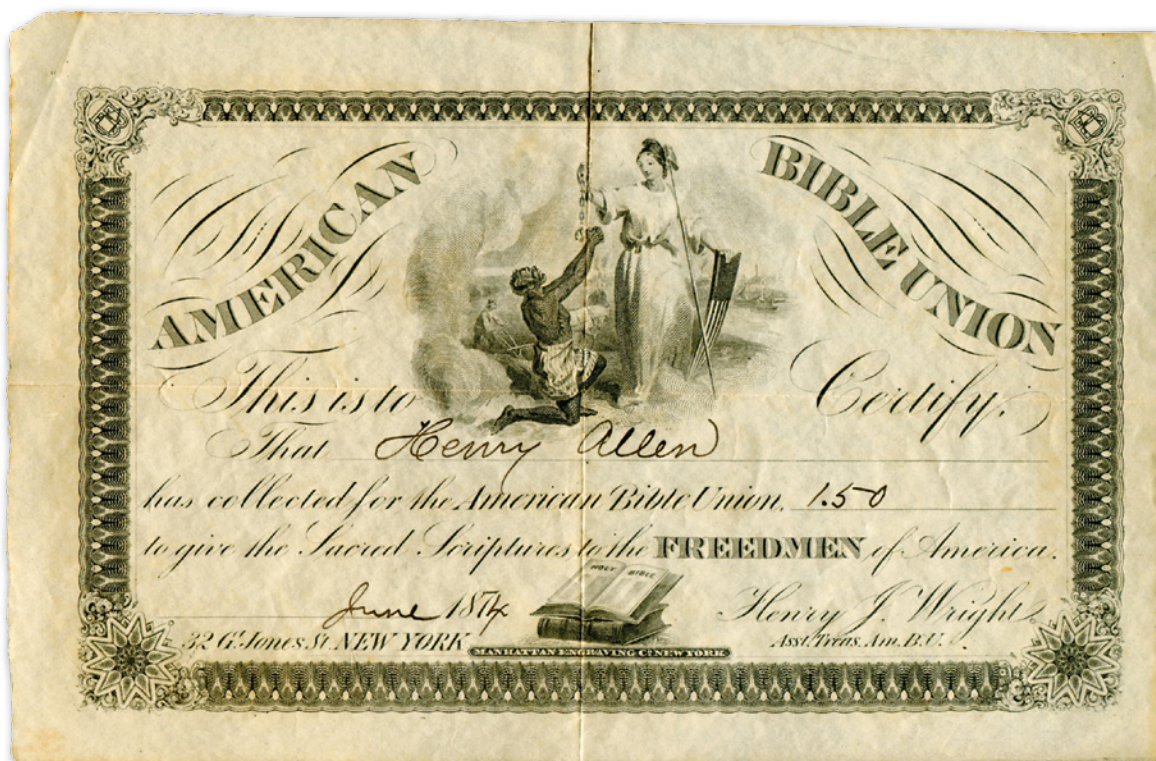 AMERICAN BIBLE UNION
This is to Certify,
That Henry Allen
has collected for the American Bible Union, 1.50
to give the Sacred Scriptures to the FREEDMEN of America.
HOLY BIBLE
June 1874 Henry J. Wright
32 Gt. Jones St. NEW YORK Asst. Treas. Am. B.U.
MANHATTAN ENGRAVING Co. NEW YORK